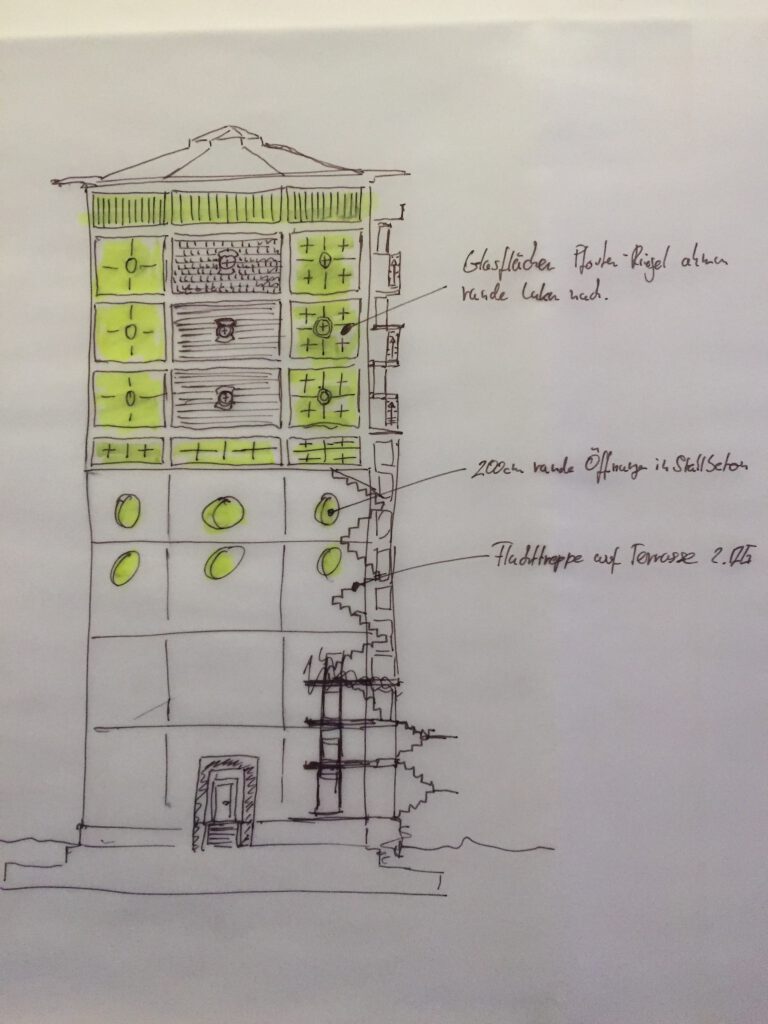 Glasflächen Pfosten-Riegel ahmen
runde Luken nach.
200cm runde Öffnungen in Stallbeton
Fluchttreppe auf Terrasse 2.OG